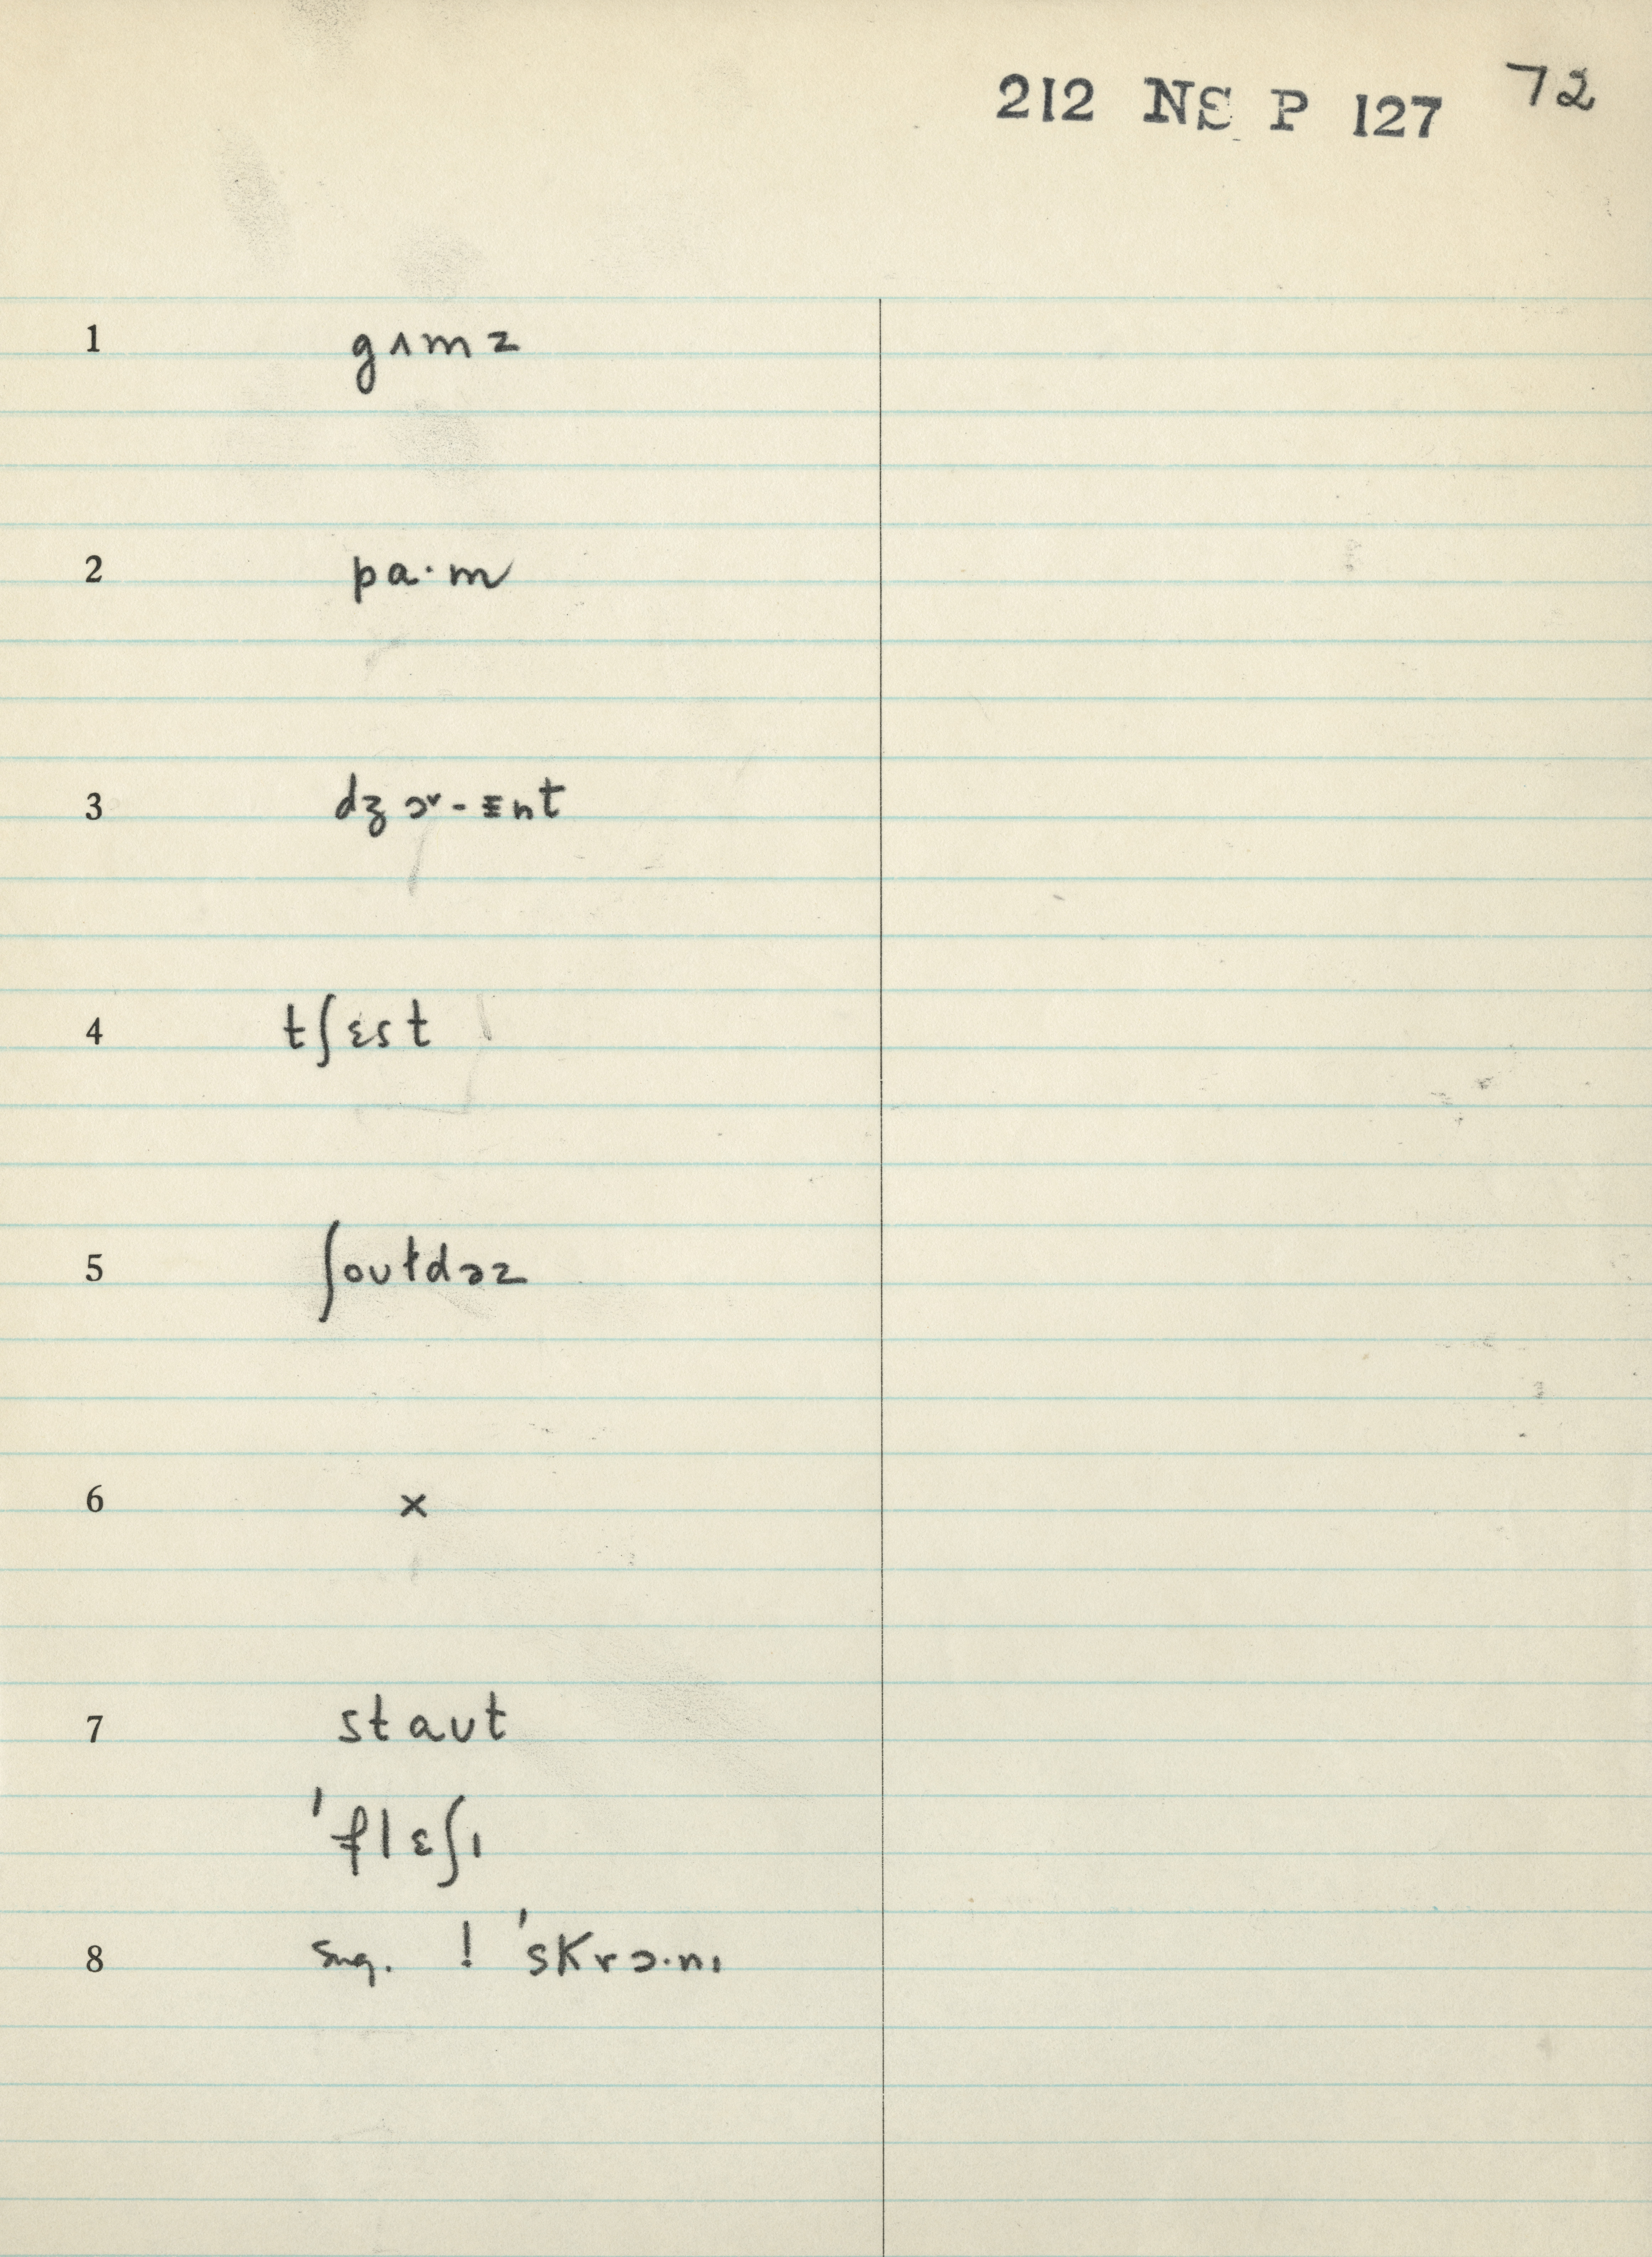 212 NS P 127 72
1 gʌmz
2 pa·m
3 dʒɔˇ-ɪnt
4 tʃɛst
5 ʃoʊɫdəz
6 ×
7 staʊt
'flɛʃɪ
8 sug. ! 'skrɔ·nɪ